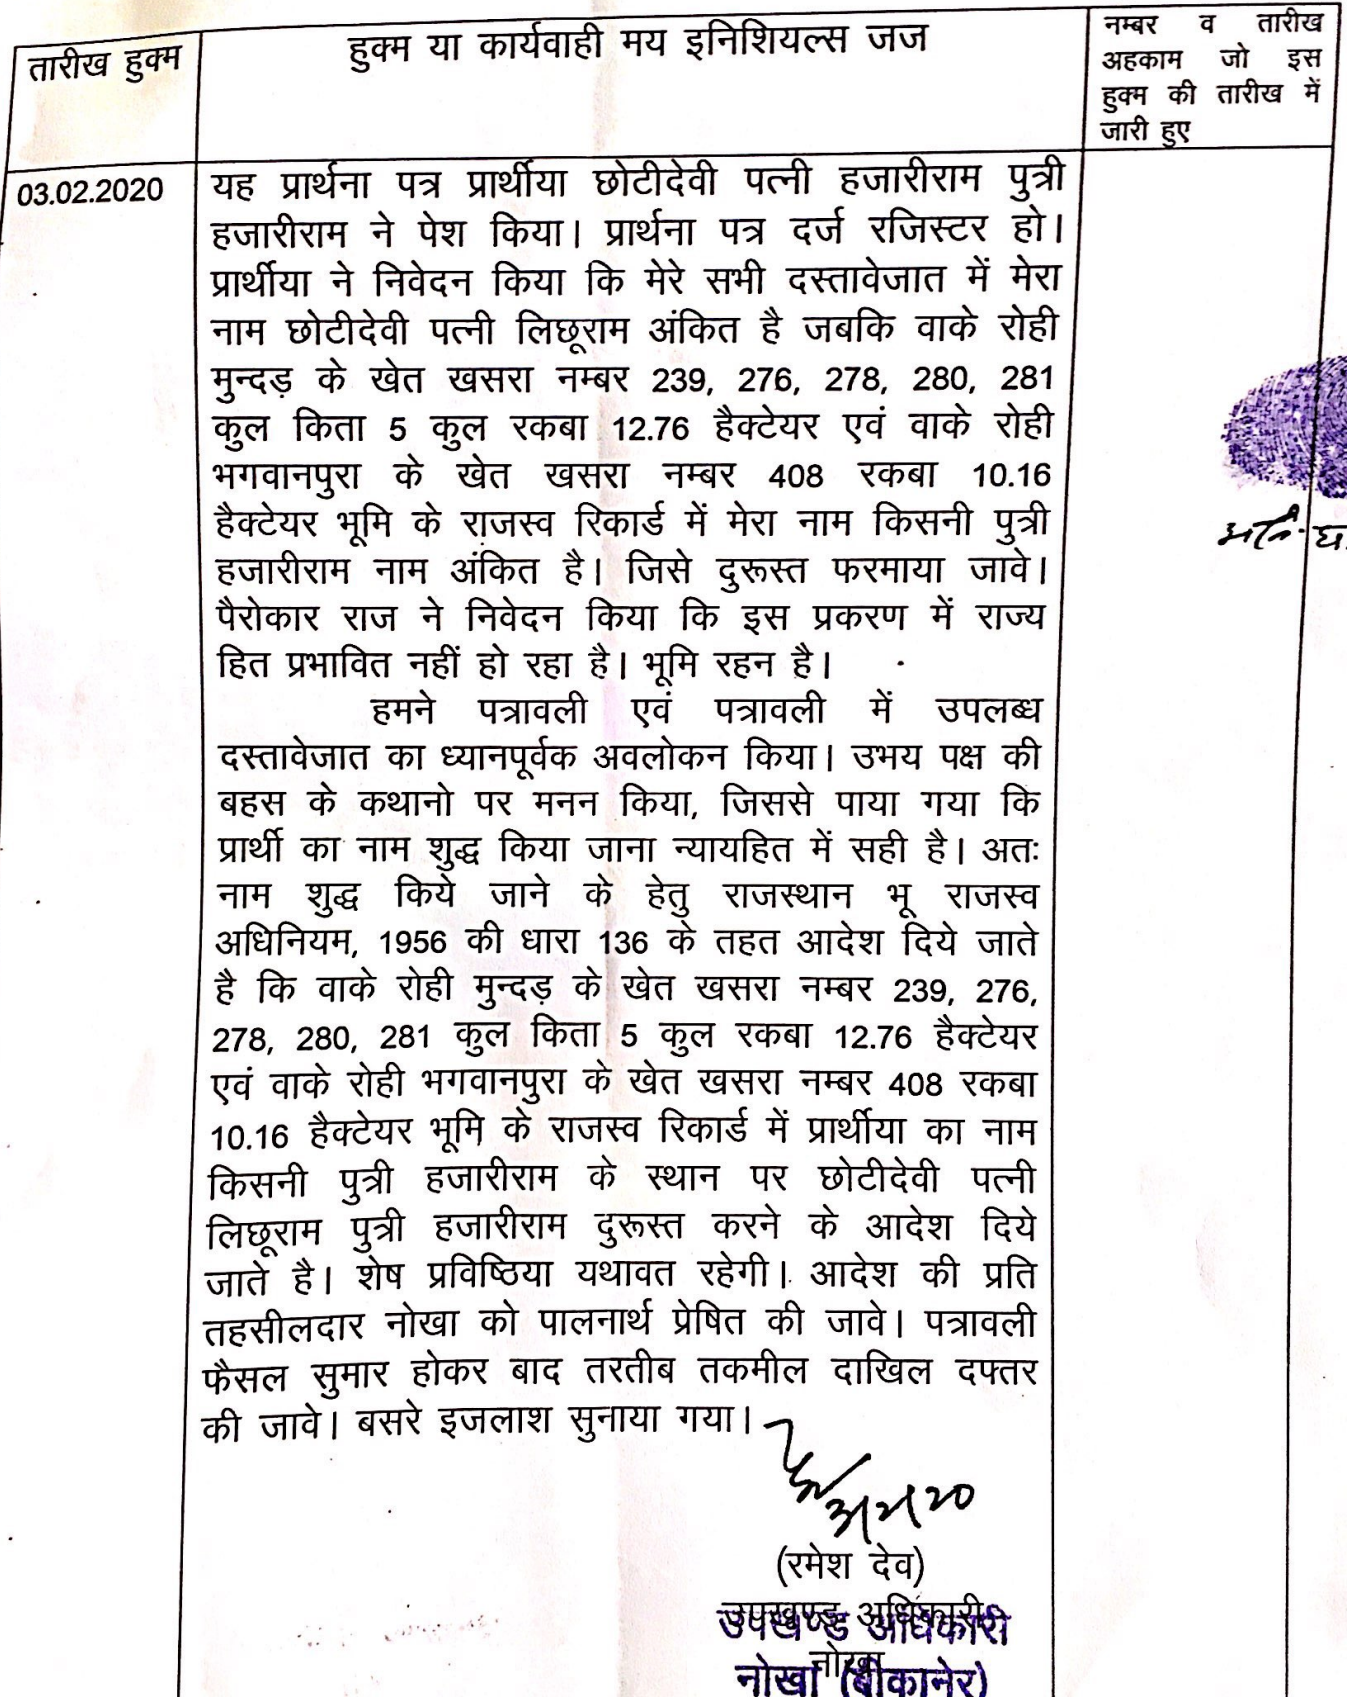 तारीख हुक्म
हुक्म या कार्यवाही मय इनिशियल्स जज
नम्बर व तारीख
अहकाम जो इस
हुक्म की तारीख में
जारी हुए
03.02.2020
यह प्रार्थना पत्र प्रार्थीया छोटीदेवी पत्नी हजारीराम पुत्री
हजारीराम ने पेश किया। प्रार्थना पत्र दर्ज रजिस्टर हो।
प्रार्थीया ने निवेदन किया कि मेरे सभी दस्तावेजात में मेरा
नाम छोटीदेवी पत्नी लिछूराम अंकित है जबकि वाके रोही
मुन्दड़ के खेत खसरा नम्बर 239, 276, 278, 280, 281
कुल किता 5 कुल रकबा 12.76 हैक्टेयर एवं वाके रोही
भगवानपुरा के खेत खसरा नम्बर 408 रकबा 10.16
हैक्टेयर भूमि के राजस्व रिकार्ड में मेरा नाम किसनी पुत्री
हजारीराम नाम अंकित है। जिसे दुरूस्त फरमाया जावे।
पैरोकार राज ने निवेदन किया कि इस प्रकरण में राज्य
हित प्रभावित नहीं हो रहा है। भूमि रहन है।
हमने पत्रावली एवं पत्रावली में उपलब्ध
दस्तावेजात का ध्यानपूर्वक अवलोकन किया। उभय पक्ष की
बहस के कथानो पर मनन किया, जिससे पाया गया कि
प्रार्थी का नाम शुद्ध किया जाना न्यायहित में सही है। अतः
नाम शुद्ध किये जाने के हेतु राजस्थान भू राजस्व
अधिनियम, 1956 की धारा 136 के तहत आदेश दिये जाते
है कि वाके रोही मुन्दड़ के खेत खसरा नम्बर 239, 276,
278, 280, 281 कुल किता 5 कुल रकबा 12.76 हैक्टेयर
एवं वाके रोही भगवानपुरा के खेत खसरा नम्बर 408 रकबा
10.16 हैक्टेयर भूमि के राजस्व रिकार्ड में प्रार्थीया का नाम
किसनी पुत्री हजारीराम के स्थान पर छोटीदेवी पत्नी
लिछूराम पुत्री हजारीराम दुरूस्त करने के आदेश दिये
जाते है। शेष प्रविष्ठिया यथावत रहेगी। आदेश की प्रति
तहसीलदार नोखा को पालनार्थ प्रेषित की जावे। पत्रावली
फैसल सुमार होकर बाद तरतीब तकमील दाखिल दफ्तर
की जावे। बसरे इजलाश सुनाया गया।
(रमेश देव)
उपखण्ड अधिकारी
नोखा
उपखण्ड अधिकारी
नोखा (बीकानेर)